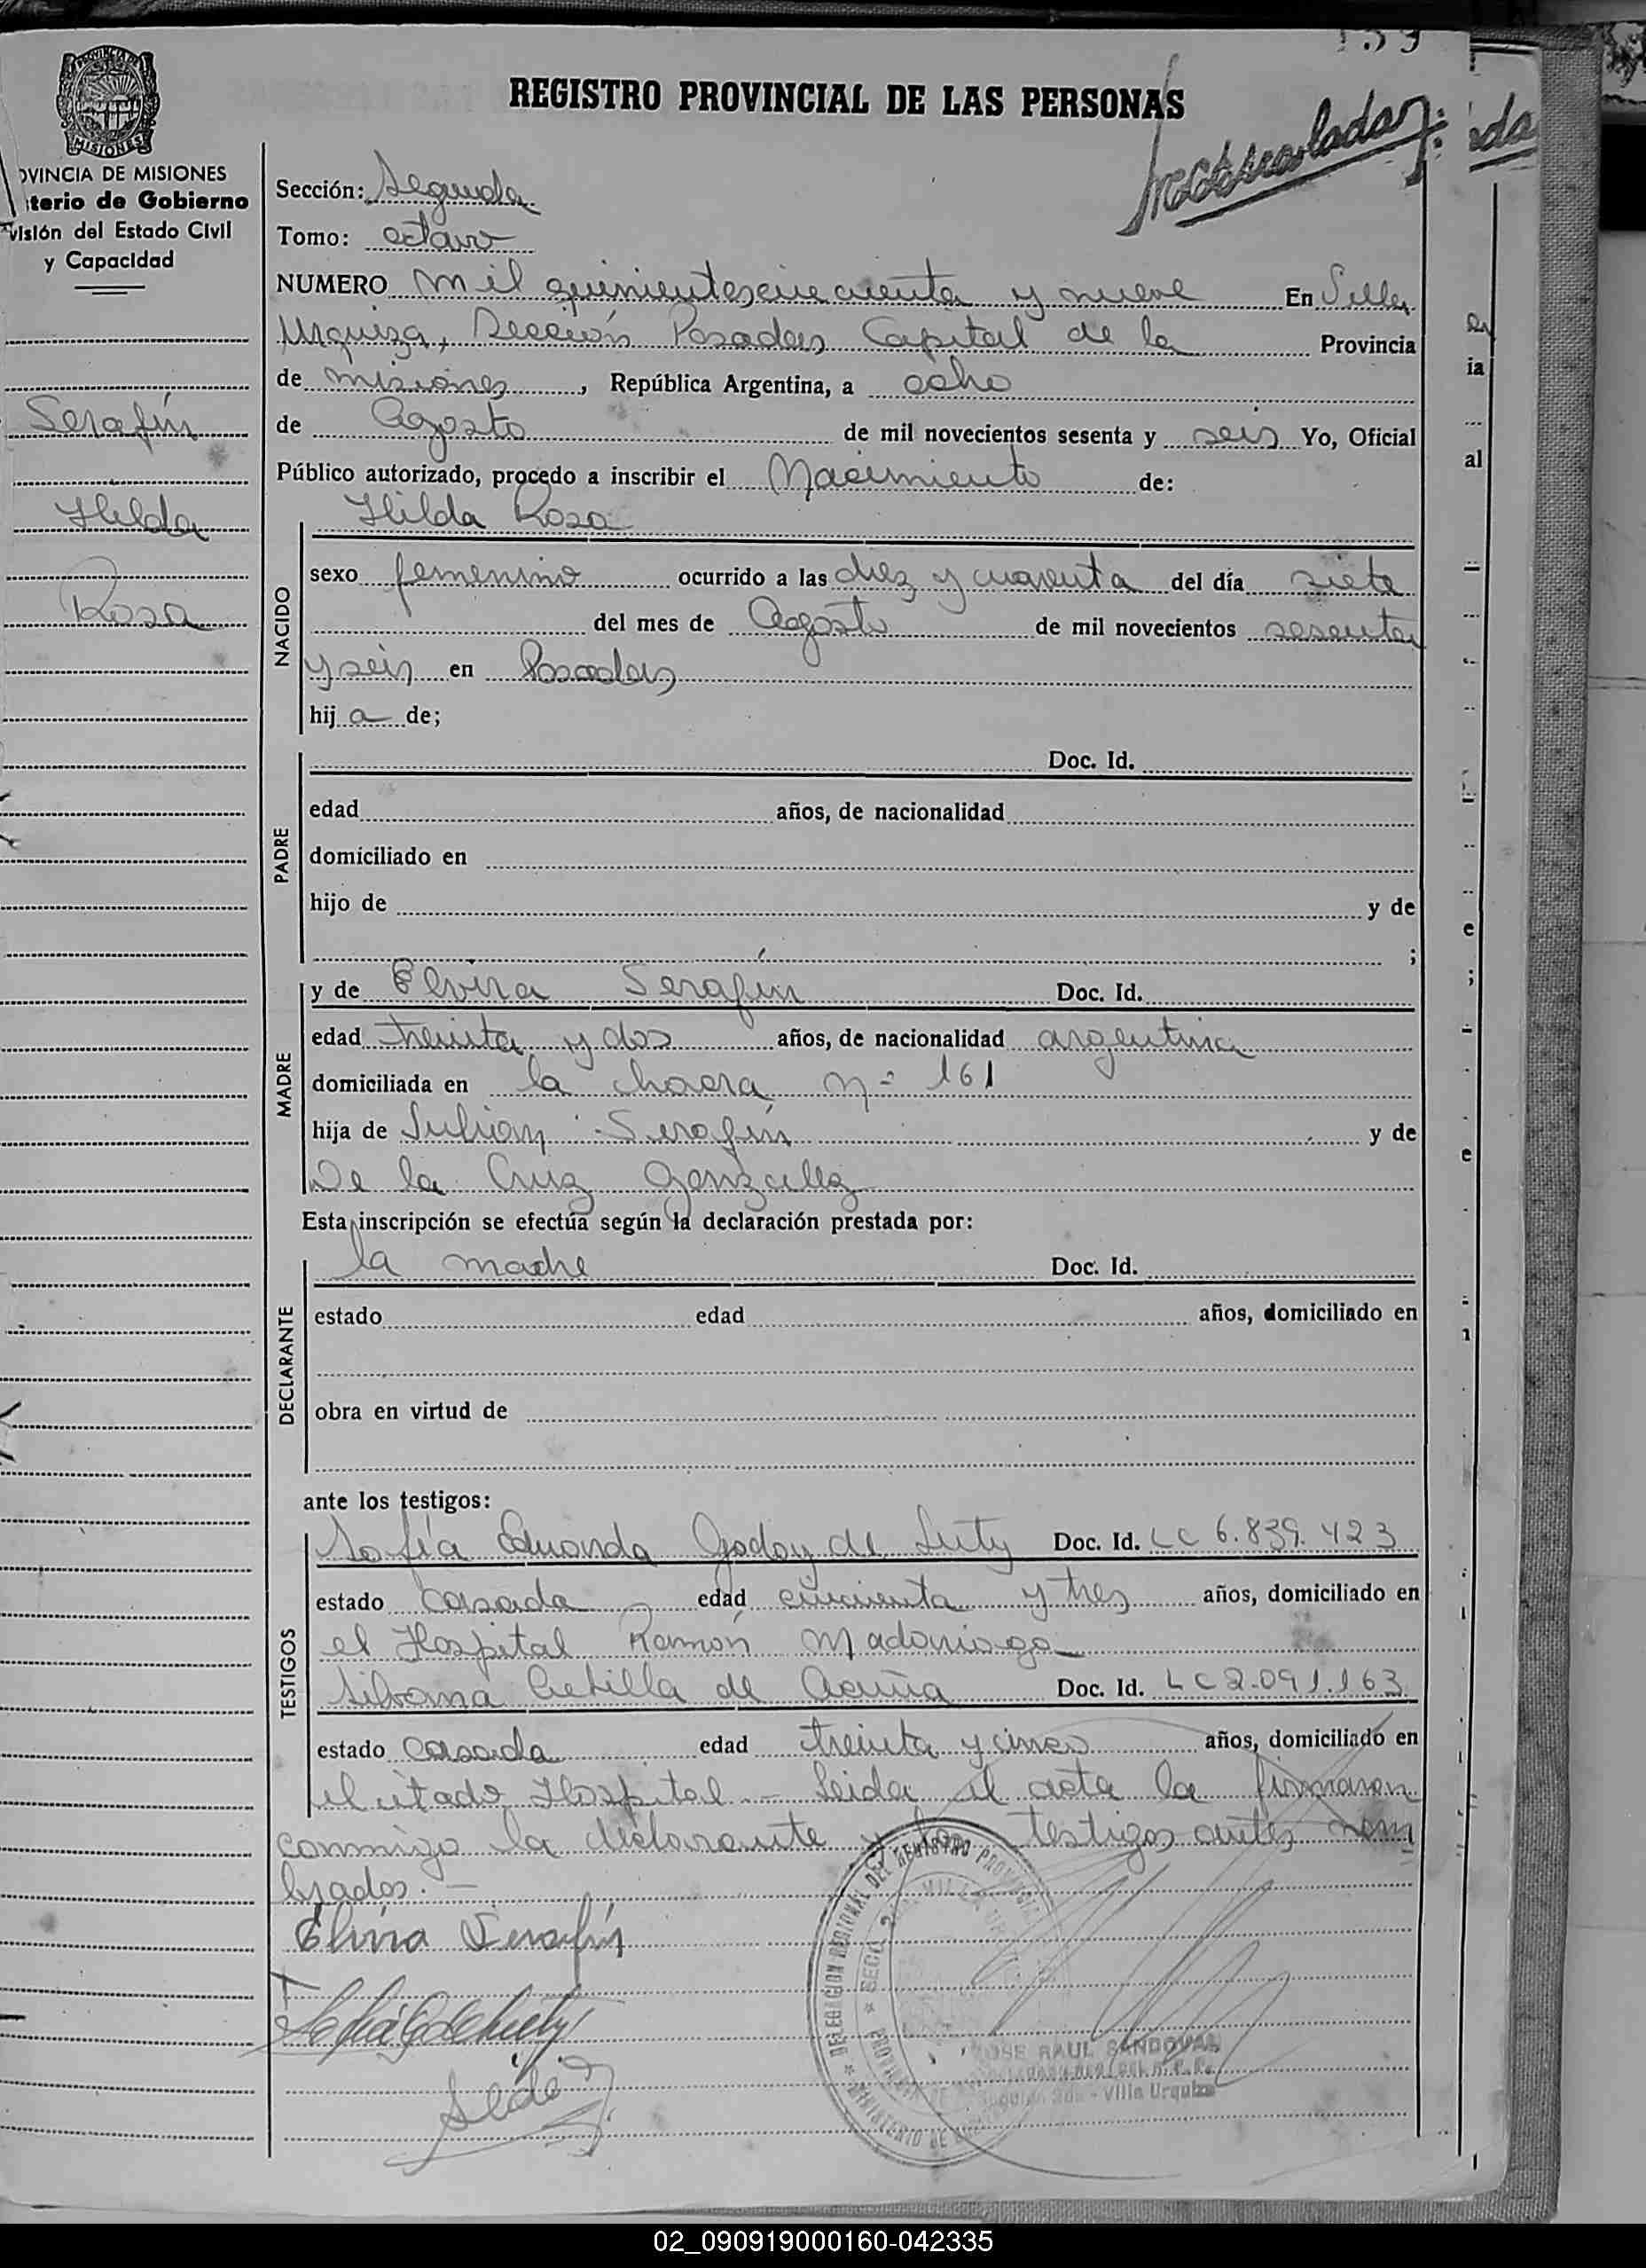 REGISTRO PROVINCIAL DE LAS PERSONAS
MISIONES
OVINCIA DE MISIONES
terio de Gobierno
visión del Estado Civil
y Capacidad
Serafín
Hilda
Rosa
Sección: Segunda
Tomo: octavo
NUMERO mil quinientos cincuenta y nueve En Villa
Urquiza, Sección Posadas Capital de la Provincia
de misiones, República Argentina, a ocho
de Agosto de mil novecientos sesenta y seis Yo, Oficial
Público autorizado, procedo a inscribir el Nacimiento de:
Hilda Rosa
NACIDO
sexo femenino ocurrido a las diez y cuarenta del día siete
del mes de Agosto de mil novecientos sesenta
y seis en Posadas
hij a de;
PADRE
Doc. Id.
edad años, de nacionalidad
domiciliado en
hijo de y de
;
MADRE
y de Elvira Serafín Doc. Id.
edad treinta y dos años, de nacionalidad argentina
domiciliada en la chacra nº 161
hija de Julián Serafín y de
De la Cruz Gonzalez
Esta inscripción se efectúa según la declaración prestada por:
DECLARANTE
la madre Doc. Id.
estado edad años, domiciliado en
obra en virtud de
ante los testigos:
TESTIGOS
Sofía Eduarda Godoy de Luty Doc. Id. LC 6.839.423
estado casada edad cincuenta y tres años, domiciliado en
el Hospital Ramón Madariaga
Silvana de Acuña Doc. Id. LC 2.091.163
estado casada edad treinta y cinco años, domiciliado en
el citado Hospital.- Leida el acta la firmaron
conmigo la declarante y los testigos antes nom
brados.-
Elvira Serafín
DELEGACION REGIONAL DEL REGISTRO
JOSE RAUL SANDOVAL
Villa Urquiza
02_090919000160-042335